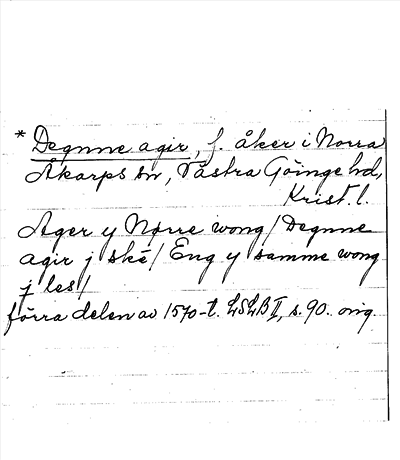 * Degnne agir, f. åker i Norra
Åkarps sn, Västra Göinge hd,
Krist. l.
Ager y Nørre wong / Degnne
agir j ské / Eng y samme wong
j les /
förra delen av 1570-t. LSLB II, s. 90. orig.